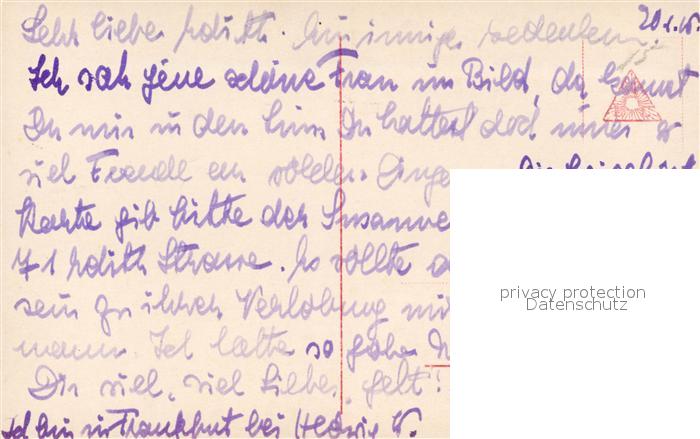 20.1.15.
Sehr liebe Edith. Ein inniges Gedenken.
15
Ich sah jene schöne Frau im Bild, da kamst
Du mir in den Sinn Du hattest doch immer so
viel Freude an solchen
Karte gib bitte der Susanne
71 Edith Strasse. Es sollte
sein zu ihrer Verlobung mit
mann Ich hatte so gerne
Dir viel, viel Liebes, gelt!
Ich bin in Frankfurt bei Hedwig W.
privacy protection
Datenschutz